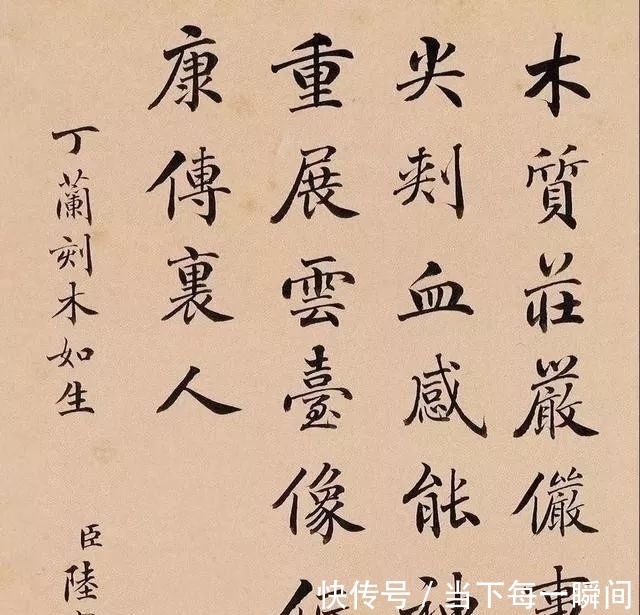 木質莊嚴儼
尖刾血感能
重展雲臺像
康傳裏人
丁蘭刻木如生
臣陸
快传号/当下每一瞬间